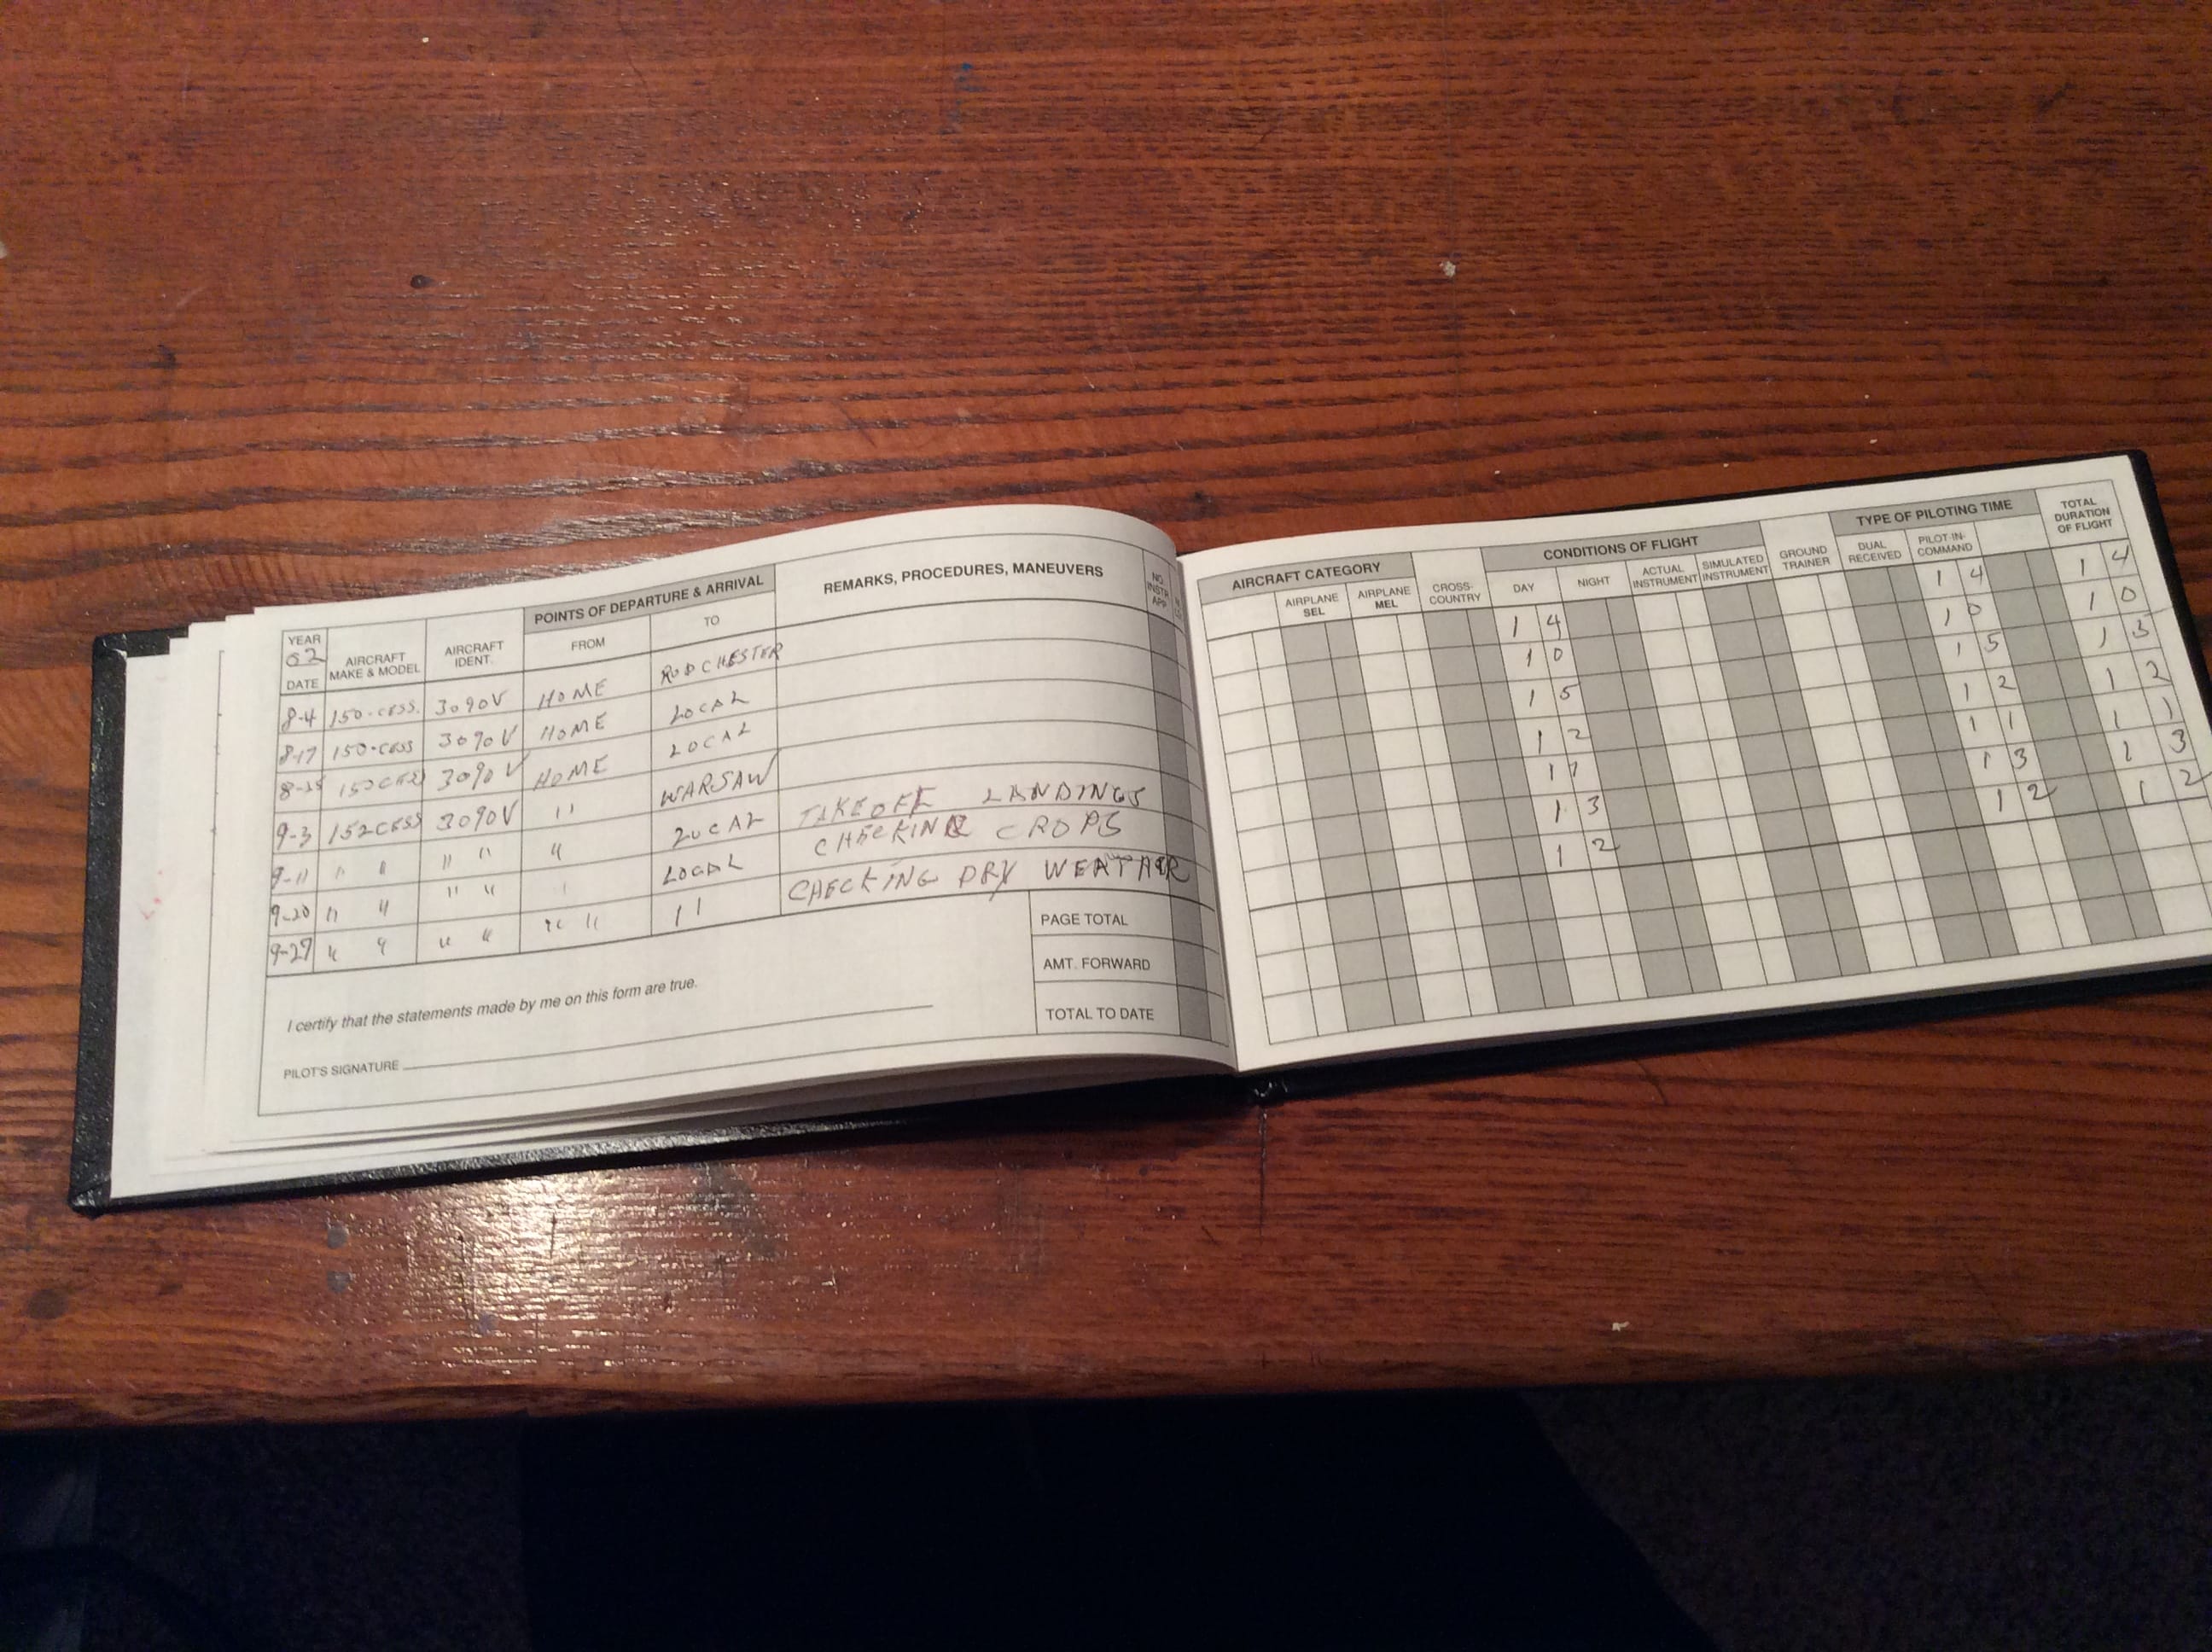 YEAR 02 DATE AIRCRAFT MAKE & MODEL AIRCRAFT IDENT. POINTS OF DEPARTURE & ARRIVAL FROM TO REMARKS, PROCEDURES, MANEUVERS NO. INSTR. APP.
8-4 150-CESS. 3090V HOME RODCHESTER
8-17 150-CESS 3090V HOME LOCAL
3090V HOME LOCAL
9-3 152CESS 3090V 11 WARSAW
9-11 " " " " " LOCAL TAKEOFF LANDINGS
9-20 " " " " LOCAL CHECKING CROPS
9-27 " " " " " " 11 CHECKING DRY WEATHER
I certify that the statements made by me on this form are true.
PILOT'S SIGNATURE
PAGE TOTAL
AMT. FORWARD
TOTAL TO DATE
AIRCRAFT CATEGORY AIRPLANE SEL AIRPLANE MEL CROSS-COUNTRY CONDITIONS OF FLIGHT DAY NIGHT ACTUAL INSTRUMENT SIMULATED INSTRUMENT GROUND TRAINER TYPE OF PILOTING TIME DUAL RECEIVED PILOT-IN-COMMAND TOTAL DURATION OF FLIGHT
1 4 1 4 1 4
1 0 1 0 1 0
1 5 1 5 1 3
1 2 1 2 1 2
1 1 1 1 1 1
1 3 1 3 1 3
1 2 1 2 1 2